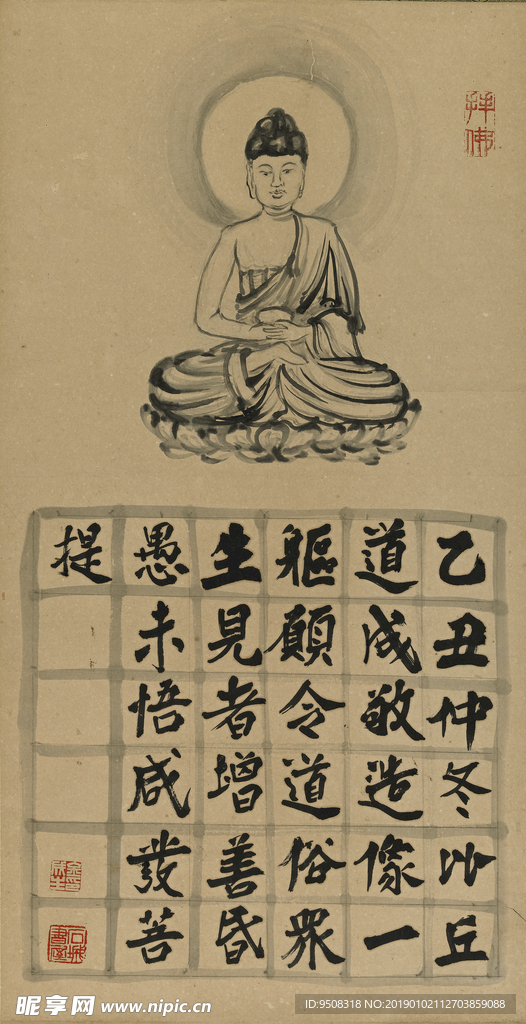 拜佛
乙丑仲冬比丘
道成敬造像一
軀願令道俗眾
生見者增善昏
愚未悟咸發菩
提
昵享网 www.nipic.cn
ID:9508318 NO:20190102112703859088